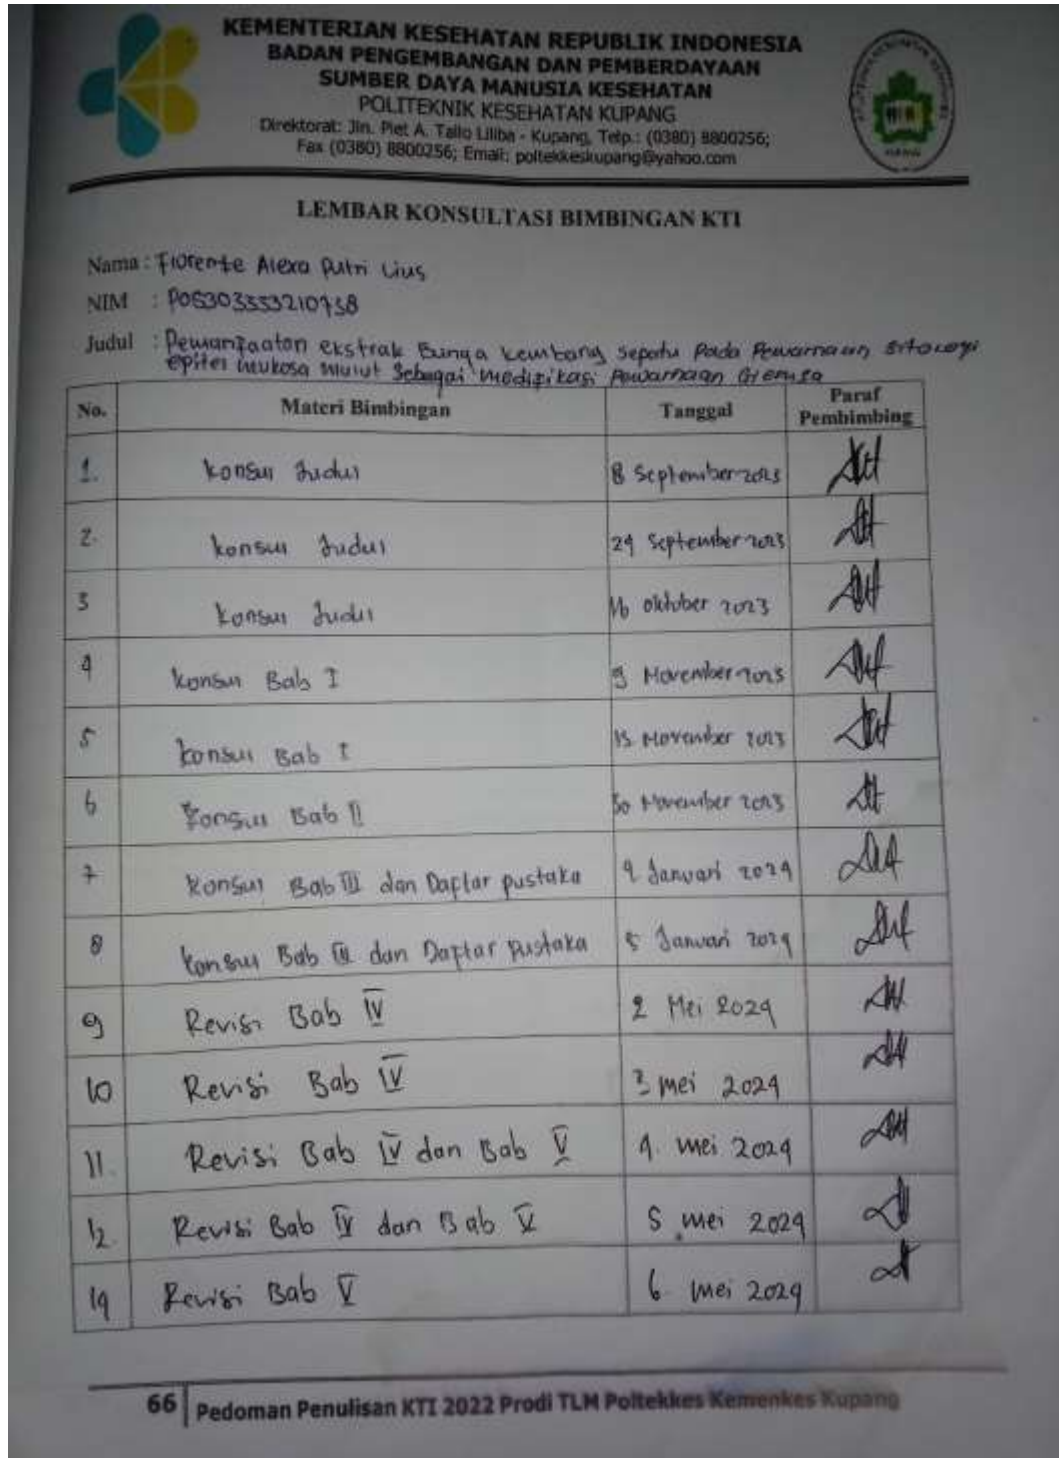 KEMENTERIAN KESEHATAN REPUBLIK INDONESIA
BADAN PENGEMBANGAN DAN PEMBERDAYAAN
SUMBER DAYA MANUSIA KESEHATAN
POLITEKNIK KESEHATAN KUPANG
Direktorat: Jln. Piet A. Tallo Liliba - Kupang, Telp.: (0380) 8800256;
Fax (0380) 8800256; Email: poltekkeskupang@yahoo.com
LEMBAR KONSULTASI BIMBINGAN KTI
Nama : Florente Alexa Putri Lius
NIM :
Judul : Pemanfaatan ekstrak Bunga kembang sepatu Pada Pewarnaan Sitologi
epitel mukosa mulut Sebagai modifikasi Pewarnaan Giemsa
No. Materi Bimbingan Tanggal Paraf Pembimbing
1. Konsul Judul 8 September 2023
2. Konsul Judul 29 September 2023
3 Konsul Judul 16 Oktober 2023
4 Konsul Bab I 9 November 2023
5 Konsul Bab I 15 November 2023
6 Konsul Bab II 30 November 2023
7 Konsul Bab III dan Daftar pustaka Januari 2024
8 Konsul Bab III dan Daftar pustaka 5 Januari 2024
9 Revisi Bab IV 2 Mei 2024
10 Revisi Bab IV 3 mei 2024
11. Revisi Bab IV dan Bab V 4. mei 2024
12. Revisi Bab IV dan Bab V 5 mei 2024
14 Revisi Bab V 6. mei 2024
66 Pedoman Penulisan KTI 2022 Prodi TLM Poltekkes Kemenkes Kupang